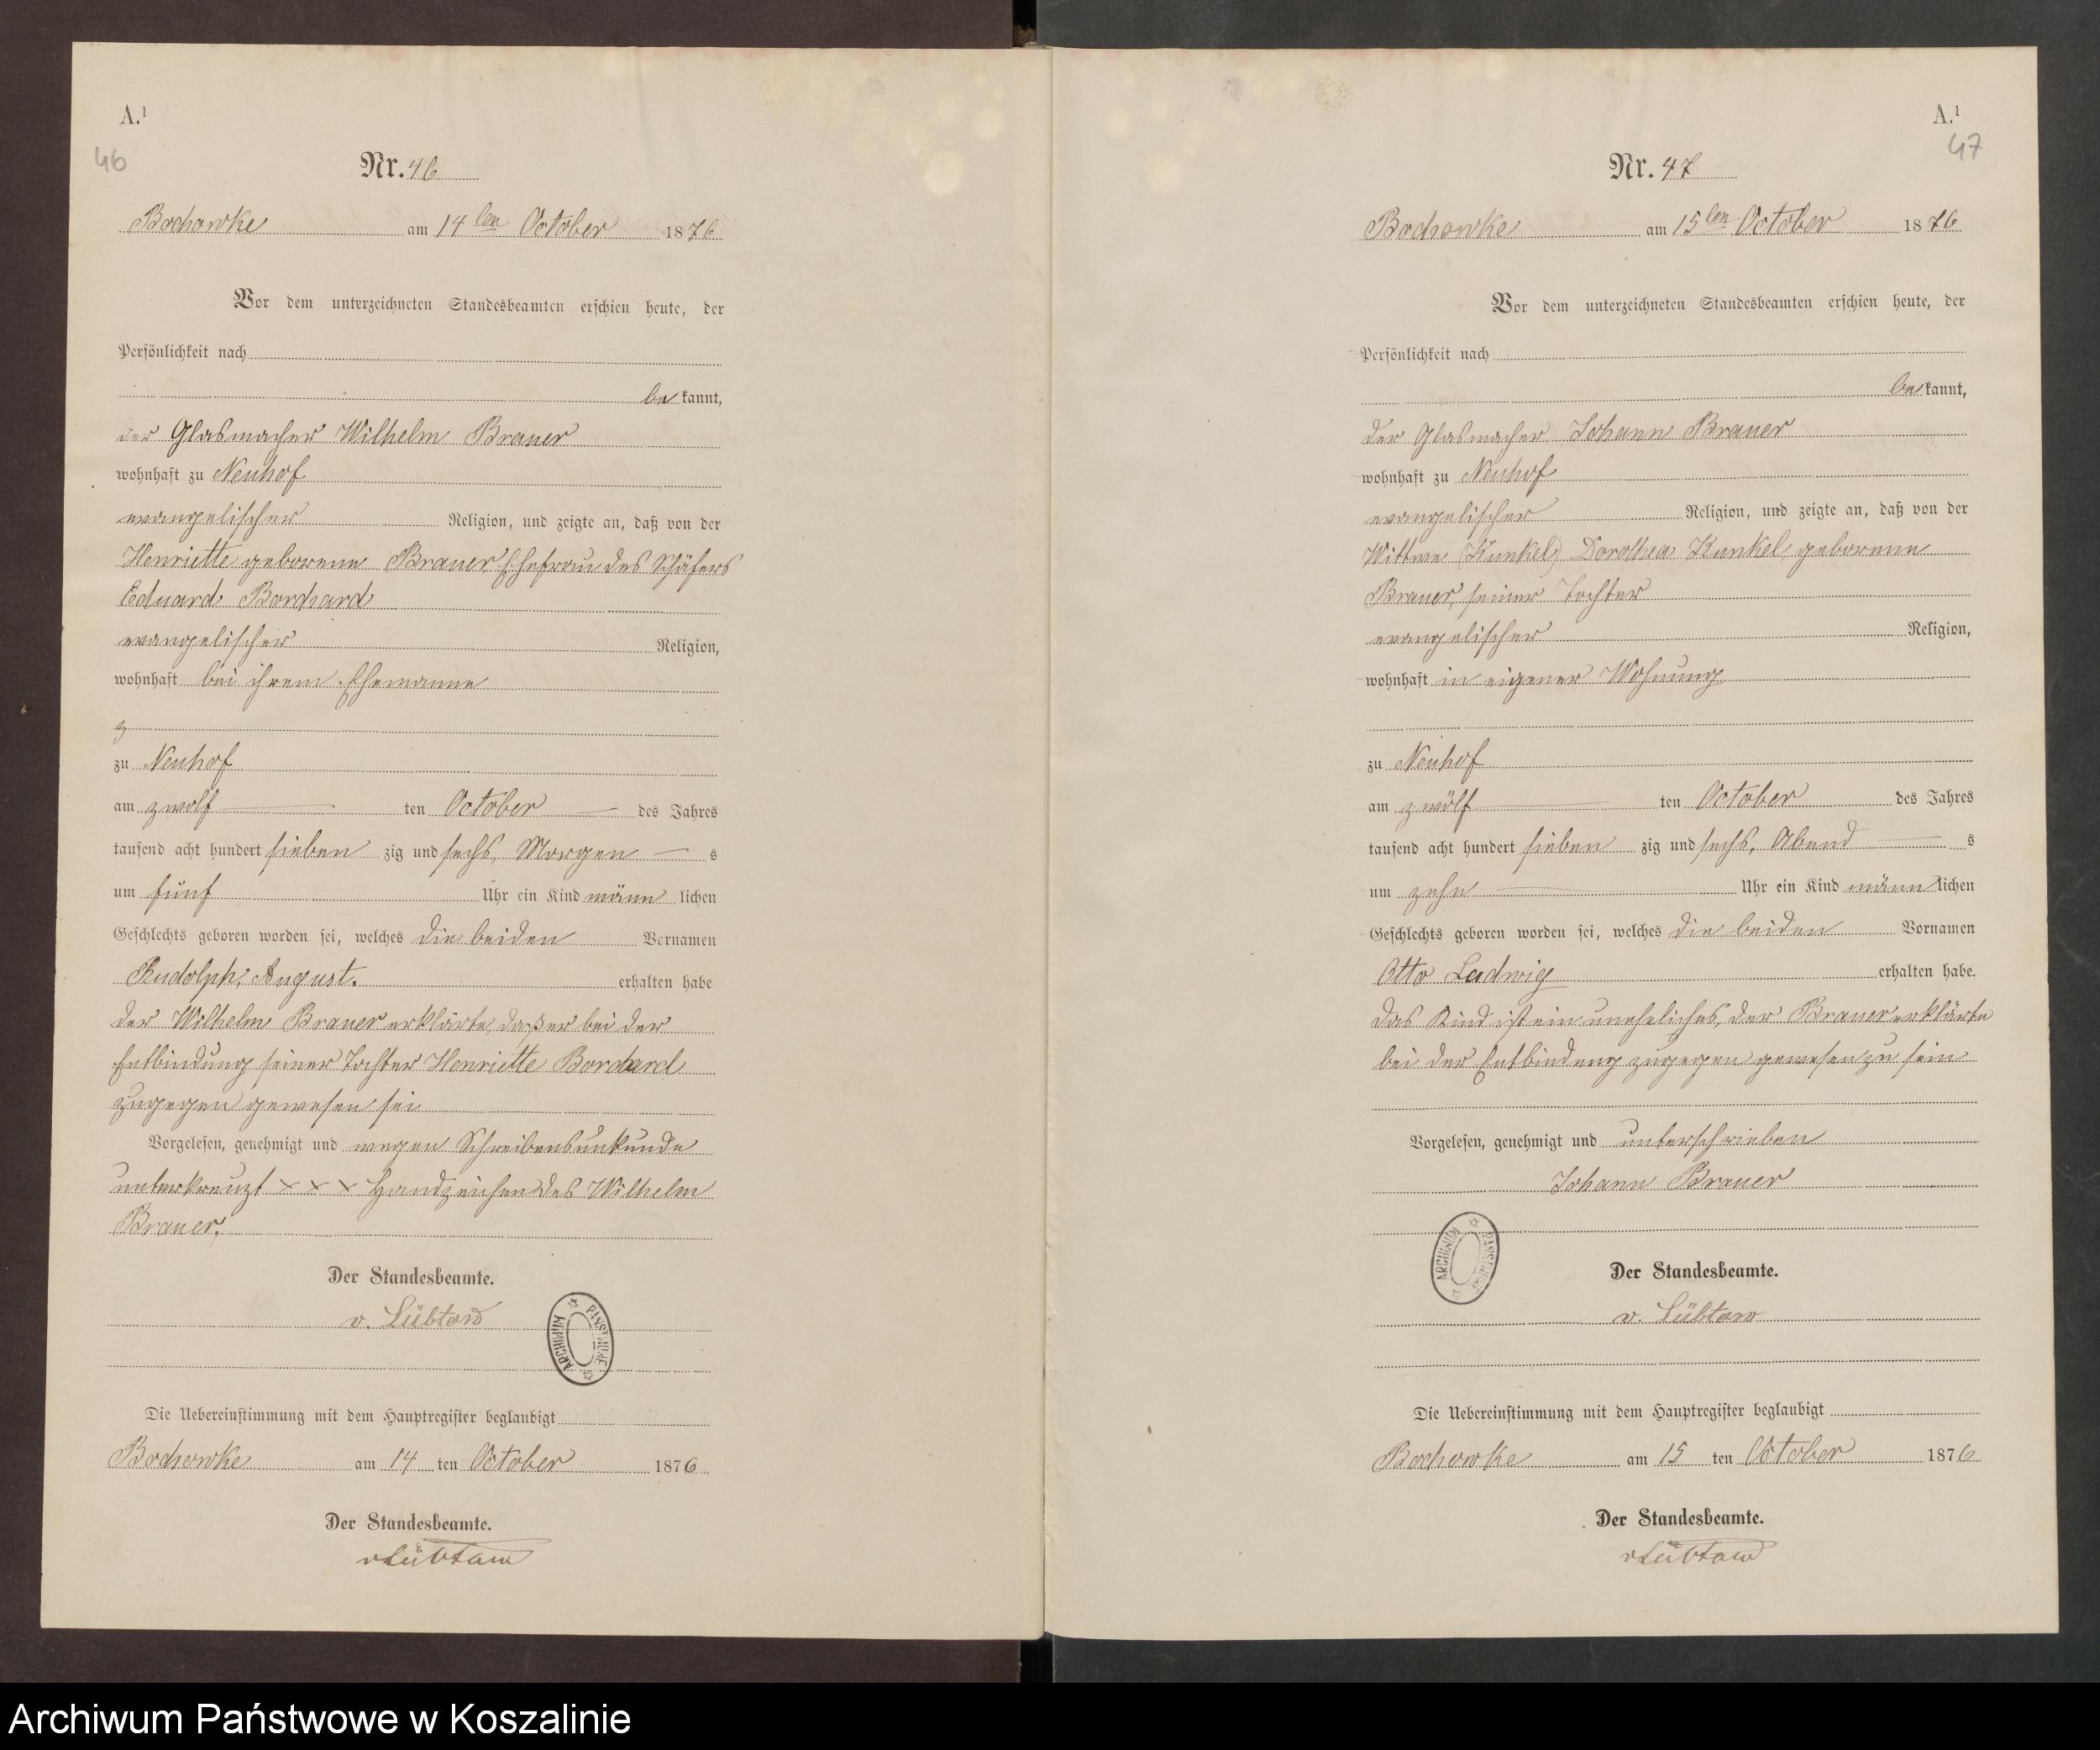 A.¹
46
Nr. 46
Bochowke am 14ten October 1876
Vor dem unterzeichneten Standesbeamten erschien heute, der
Persönlichkeit nach
be kannt,
der Glasmacher Wilhelm Brauer
wohnhaft zu Neuhof
evangelischer Religion, und zeigte an, daß von der
Henriette geborene Brauer Ehefrau des Schäfers
Eduard Borchard
evangelischer Religion,
wohnhaft bei ihrem Ehemanne
zu Neuhof
am zwölf ten October des Jahres
tausend acht hundert sieben zig und sechs, Morgen s
um fünf Uhr ein Kind männ lichen
Geschlechts geboren worden sei, welches die beiden Vornamen
Rudolph, August. erhalten habe
der Wilhelm Brauer erklärte, daß er bei der
Entbindung seiner Tochter Henriette Borchard
zugegen gewesen sei
Vorgelesen, genehmigt und wegen Schreibensunkunde
unterkreuzt × × × Handzeichen des Wilhelm
Brauer.
Der Standesbeamte.
v. Lübtow
ARCHIWUM PAŃSTWOWE
Die Uebereinstimmung mit dem Hauptregister beglaubigt
Bochowke am 14 ten October 1876
Der Standesbeamte.
vLübtow
A.¹
47
Nr. 47
Bochowke am 15ten October 1876
Vor dem unterzeichneten Standesbeamten erschien heute, der
Persönlichkeit nach
be kannt,
der Glasmacher Johann Brauer
wohnhaft zu Neuhof
evangelischer Religion, und zeigte an, daß von der
Wittwe (Kunkel) Dorothea Kunkel, geborene
Brauer, seiner Tochter
evangelischer Religion,
wohnhaft in eigener Wohnung
zu Neuhof
am zwölf ten October des Jahres
tausend acht hundert sieben zig und sechs, Abend s
um zehn Uhr ein Kind männ lichen
Geschlechts geboren worden sei, welches die beiden Vornamen
Otto Ludwig erhalten habe.
das Kind ist ein uneheliches, der Brauer erklärte
bei der Entbindung zugegen gewesen zu sein
Vorgelesen, genehmigt und unterschrieben
Johann Brauer
ARCHIWUM PAŃSTWOWE
Der Standesbeamte.
v. Lübtow
Die Uebereinstimmung mit dem Hauptregister beglaubigt
Bochowke am 15 ten October 1876
Der Standesbeamte.
vLübtow
Archiwum Państwowe w Koszalinie